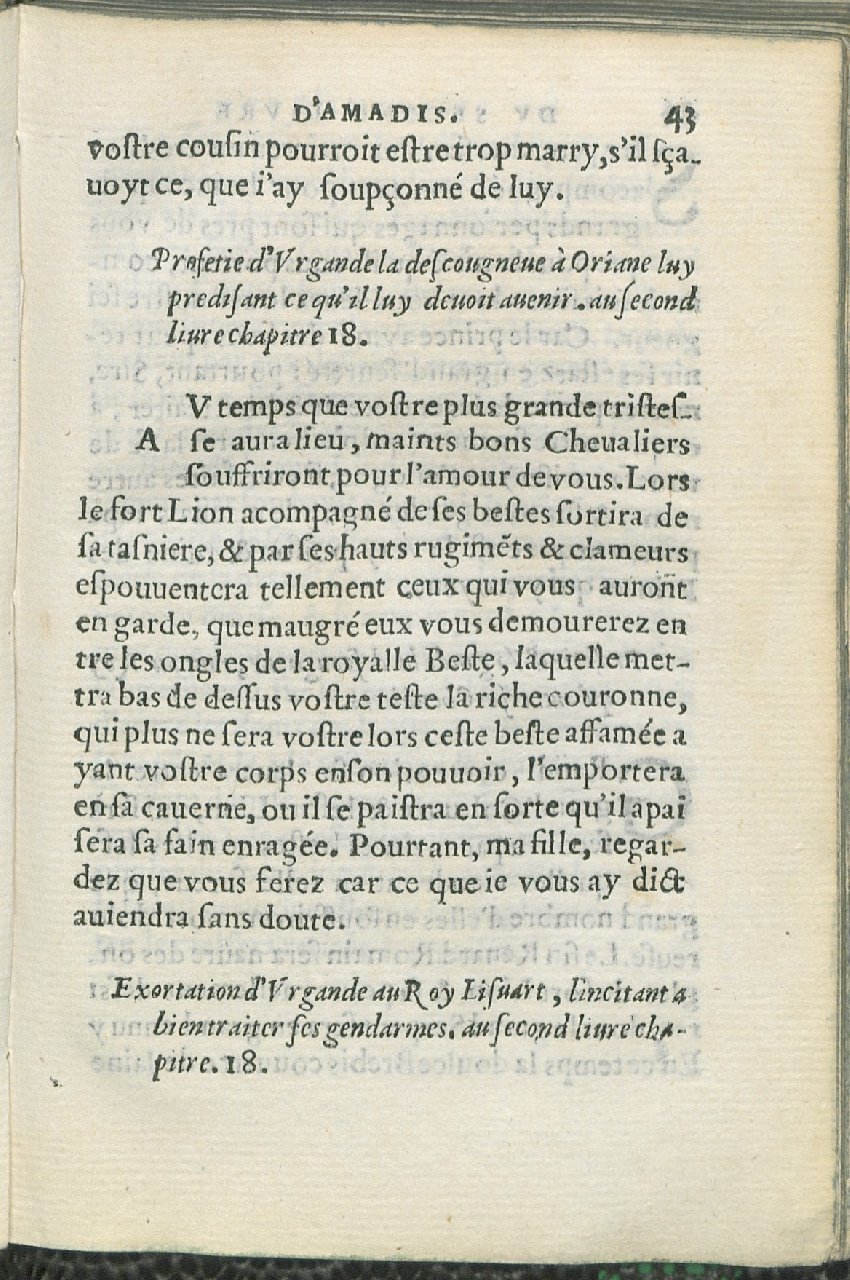 D'AMADIS. 43
vostre cousin pourroit estre trop marry, s'il sça-
uoyt ce, que i'ay soupçonné de luy.
Profetie d'Vrgande la descougneue à Oriane luy
predisant ce qu'il luy deuoit auenir. au second
liure chapitre 18.
V temps que vostre plus grande tristes-
A se aura lieu, maints bons Cheualiers
souffriront pour l'amour de vous. Lors
le fort Lion acompagné de ses bestes sortira de
sa tasniere, & par ses hauts rugimẽts & clameurs
espouuentera tellement ceux qui vous auront
en garde, que maugré eux vous demourerez en
tre les ongles de la royalle Beste, laquelle met-
tra bas de dessus vostre teste la riche couronne,
qui plus ne sera vostre lors ceste beste affamée a
yant vostre corps en son pouuoir, l'emportera
en sa cauerne, ou il se paistra en sorte qu'il apai
sera sa fain enragée. Pourtant, ma fille, regar-
dez que vous ferez car ce que ie vous ay dict
auiendra sans doute.
Exortation d'Vrgande au Roy Lisuart, l'incitant a
bien traiter ses gendarmes. au second liure cha-
pitre. 18.